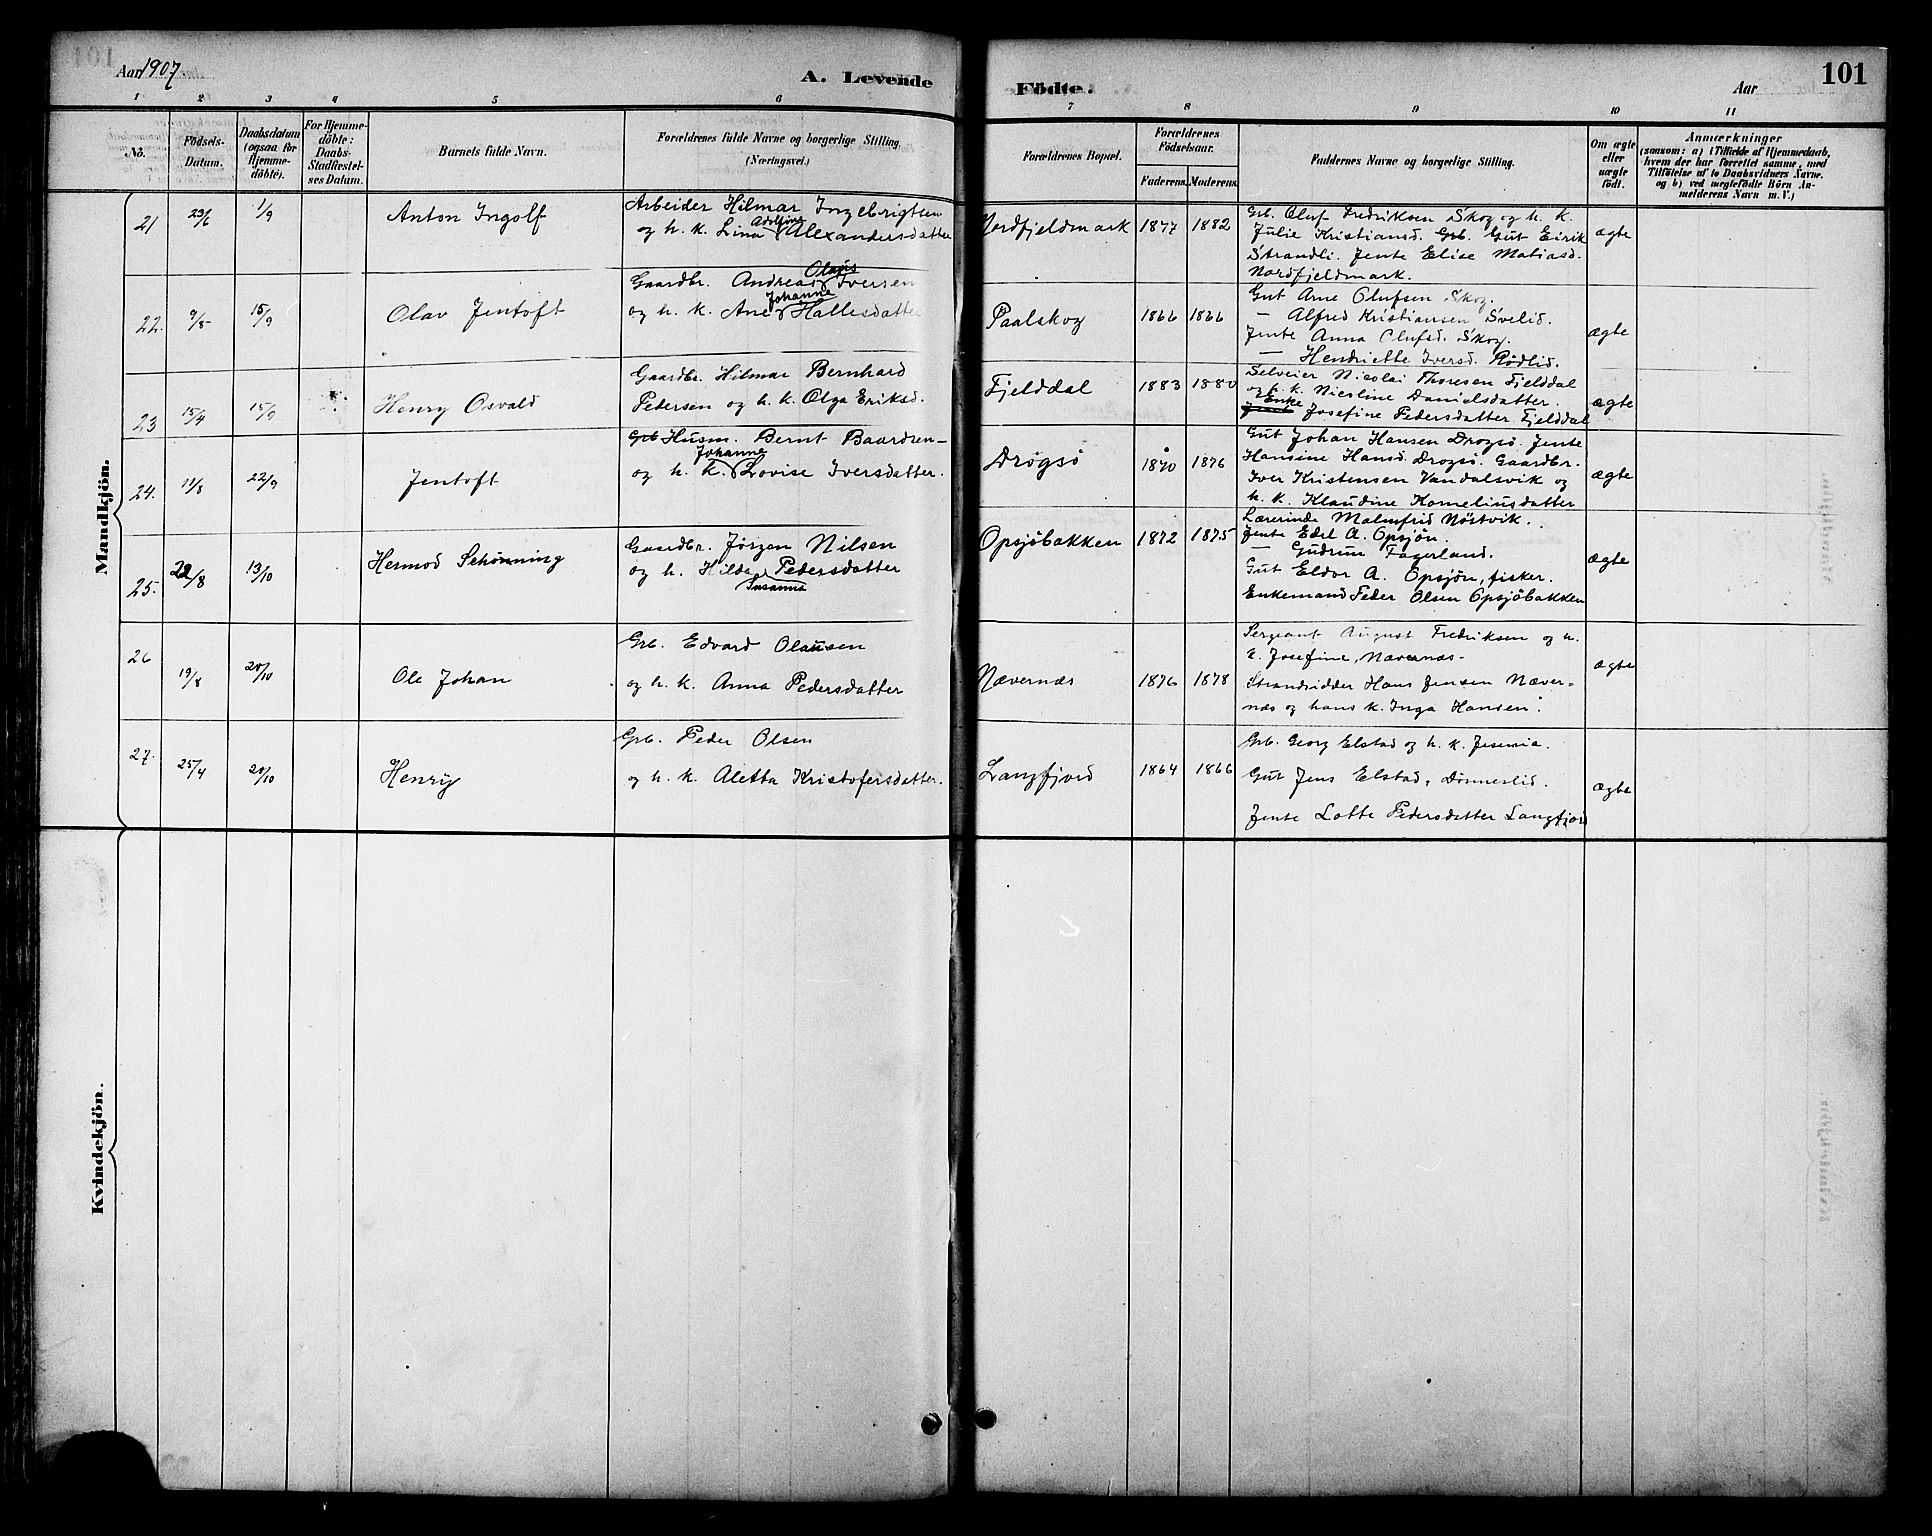 Aar 1907.
A. Levende
Födte.
Aar
101
1 2 3 4 5 6 7 8 9 10 11
No.
Födsels-
Datum.
Daabsdatum
(ogsaa for
Hjemme-
döbte).
For Hjemme-
döbte:
Daabs-
Stadfæstel-
ses Datum.
Barnets fulde Navn.
Forældrenes fulde Navne og borgerlige Stilling.
(Næringsvei.)
Forældrenes Bopæl.
Forældrenes
Födselsaar.
Faderens. Moderens.
Faddernes Navne og borgerlige Stilling.
Om ægte
eller
uægte
födt.
Anmærkninger
(saasom: a) i Tilfælde af Hjemmedaab,
hvem der har forrettet samme, med
Tilföielse af to Daabsvidners Navne,
og b) ved uægtefödte Börn An-
melderens Navn m. V.)
Mandkjön.
21 23/6 1/9
Anton Ingolf
Arbeider Hilmar Ingebrigtsen
Adolfine
og h. k. Lina Alexandersdatter
Nordfjeldmark 1877 1882
Grb. Oluf Fredriksen Skog og h. k.
Julie Kristiansd. Grb. Gut Eirik
Strandli. Jente Elise Matiasd.
Nordfjeldmark.
ægte
22. 9/5 15/9
Olav Jentoft
Olaus
Gaardbr. Andreas Iversen
Johanna
og h. k. Ane Hallesdatter
Paalskog 1866 1866
Gut Arne Olufsen Skog.
— Alfred Kristiansen Svelid.
Jente Anna Olufsd. Skog.
— Henriette Iversd. Rödlid.
ægte
23 15/4 15/9
Henry Osvald
Gaardbr. Hilmar Bernhard
Pedersen og h. k. Olga Eriksd.
Fjelddal 1883 1880
Selveier Nicolai Thoresen Fjelddal
og h. k. Nicoline Danielsdatter.
Enke
Josefine Pedersdatter Fjelddal
ægte
24. 11/8 22/9
Jentoft
Grb Husm. Bernt Baardsen-
Johanne
og h. k. Lovise Iversdatter.
Drogsö 1870 1876
Gut Johan Hansen Drogsö. Jente
Hansine Hansd. Drogsö. Gaardbr.
Iver Kristensen Vandalsvik og
h. k. Klaudine Korneliusdatter
ægte
25. 22/8 13/10
Hermod Schönning
Gaardbr. Jörgen Nilsen
og h. Hilda Pedersdatter
Susanna
Opsjöbakken 1872 1875
Lærerinde Malmfrid Nöstvik.
Jente Edel A. Opsjön.
— Gudrun Fagerland.
Gut Eldor A. Opsjön, fisker.
Enkemand Peder Olsen Opsjöbakken
ægte
26 19/8 20/10
Ole Johan
Grb. Edvard Olausen
og h. k. Anna Pedersdatter
Nævernæs 1876 1878
Sergeant August Fredriksen og h.
k. Josefine, Nævernæs-
Strandsidder Hans Jensen Næver-
næs og hans k. Inga Hansen.
ægte
27. 25/4 20/10
Henry
Grb. Peder Olsen
og h. k. Aletta Kristofersdatter.
Langfjord 1864 1866
Grb. Georg Elstad og h. k. Jesenia.
Gut Jens Elstad, Dönneslid.
Jente Lotte Pedersdatter Langfjord
ægte
Kvindekjön.